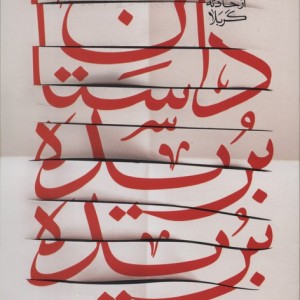 از حادثه
کربلا
داستان
بُریده
بُریده